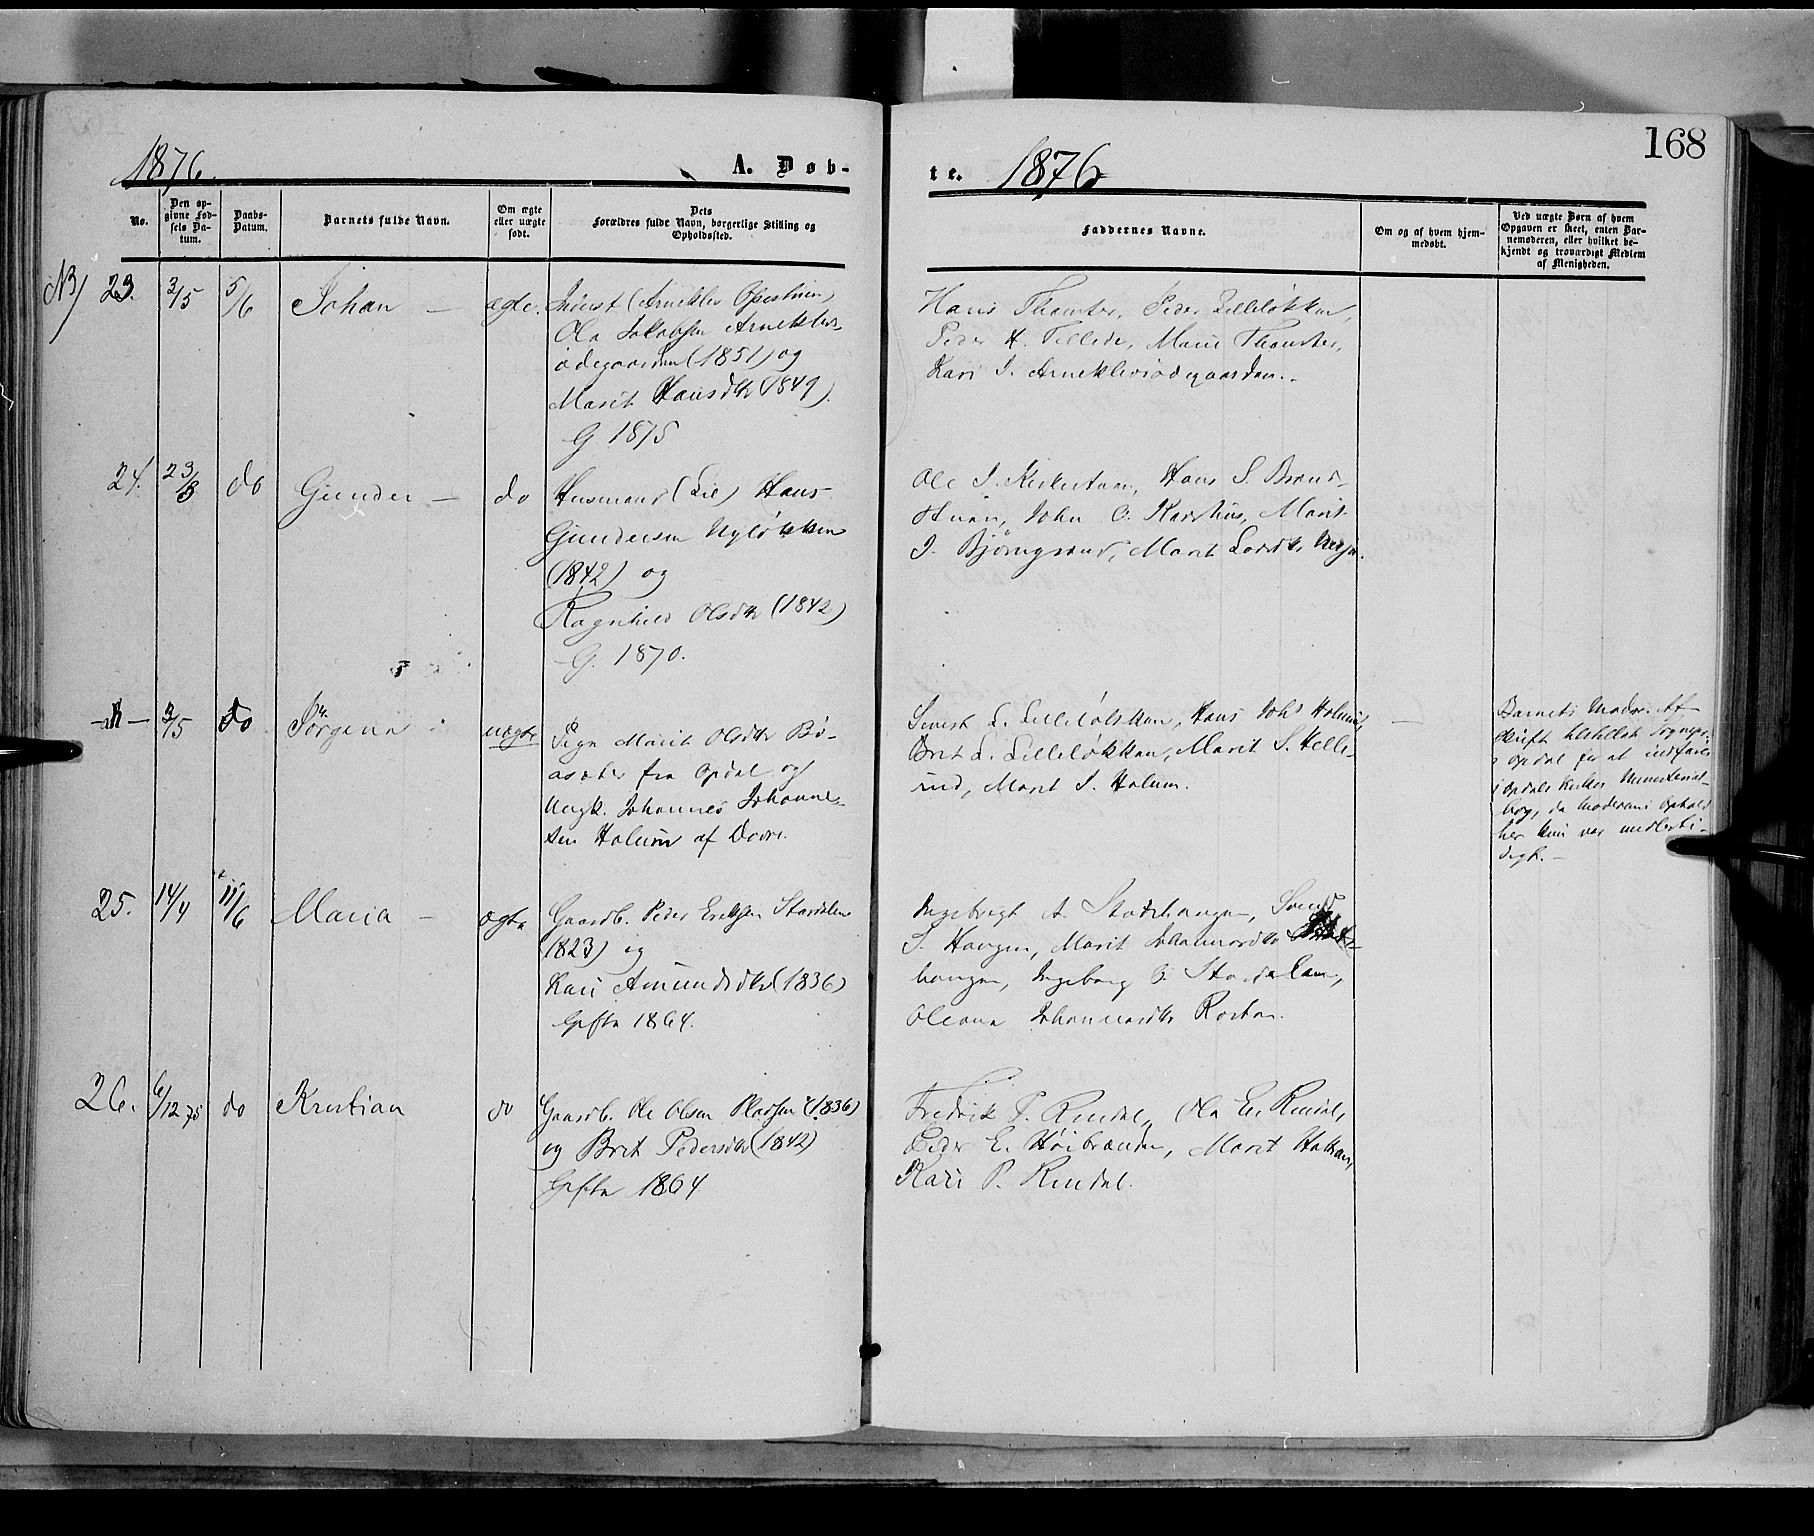 168
1876.
A. Døb-
te.
1876
No.
Den op-
givne Fød-
sels Da-
tum.
Daabs-
Datum.
Barnets fulde Navn.
Om ægte
eller uægte
født.
Dets
Forældres fulde Navn, borgerlige Stilling og
Opholdssted.
Faddernes Navne.
Om og af hvem hjem-
medøbt.
Ved uægte Børn af hvem
Opgaven er skeet, enten Bar-
nemoderen, eller hvilket be-
kjendt og troværdigt Medlem
af Menigheden.
23. 3/5 5/6 Johan — ægte.
Ola Jakobsen Arneklevs-
ødegaarden (1851) og
Marit Hansdtr (1849)
G 1875
Hans Thomter, Peder Lilleløkken,
Peder H. Tellede, Marie Thomter,
Kari J. Arneklevsødegaarden.
24. 23/3 do Gunder — do
Husmand (Lie) Hans
Gundersen Nyløkken
(1842) og
Ragnhild Olsdtr (1842)
G. 1870.
Ole J. Kirkestuen, Hans S. Brænd-
stuen, John O. Marit
J. Bjørngsrud, Marit
3/5 do Jørgina uægte
Pige Marit Olsdtr Bø-
asæter fra Opdal og
Ungk. Johannes Johanne-
sen Holum af Dovre.
Lilleløkken, Hans Johs Holum,
Brit L. Lilleløkken, Marit S. Helle-
rud, Marit J. Holum. —
Barnets Moder. Af-
skrift tilstillet Sognepr.
i Opdal for at indføres
i Opdals Kirkes Ministerial-
bog, da Moderens Ophold
her kun var midlerti-
digt. —
25. 14/4 11/6 Maria — ægte
Gaardb. Peder Eriksen Stordalen
(1823) og
Kari Amundsdtr (1836)
Gifte 1864.
Ingebrigt A. Svend
S. Haugen, Marit Johannesdtr
haugen, Ingeborg O. Stordalen,
Oleana Johannesdtr Rosten.
26. 6/12 75 do Kristian do
Gaardb. Ole Olsen Pladsen (1836)
og Brit Pedersdtr (1842)
Gifte 1864
Fredrik P. Rindal, Ola E. Rindal,
Peder E. Høibrænden, Marit
Kari P. Rindal.